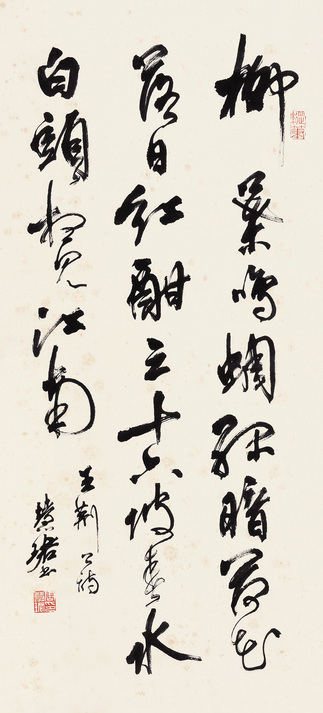 柳葉鳴蜩綠暗荷花
落日紅酣三十六陂春水
白頭想見江南
王荆公詩
慧珺書